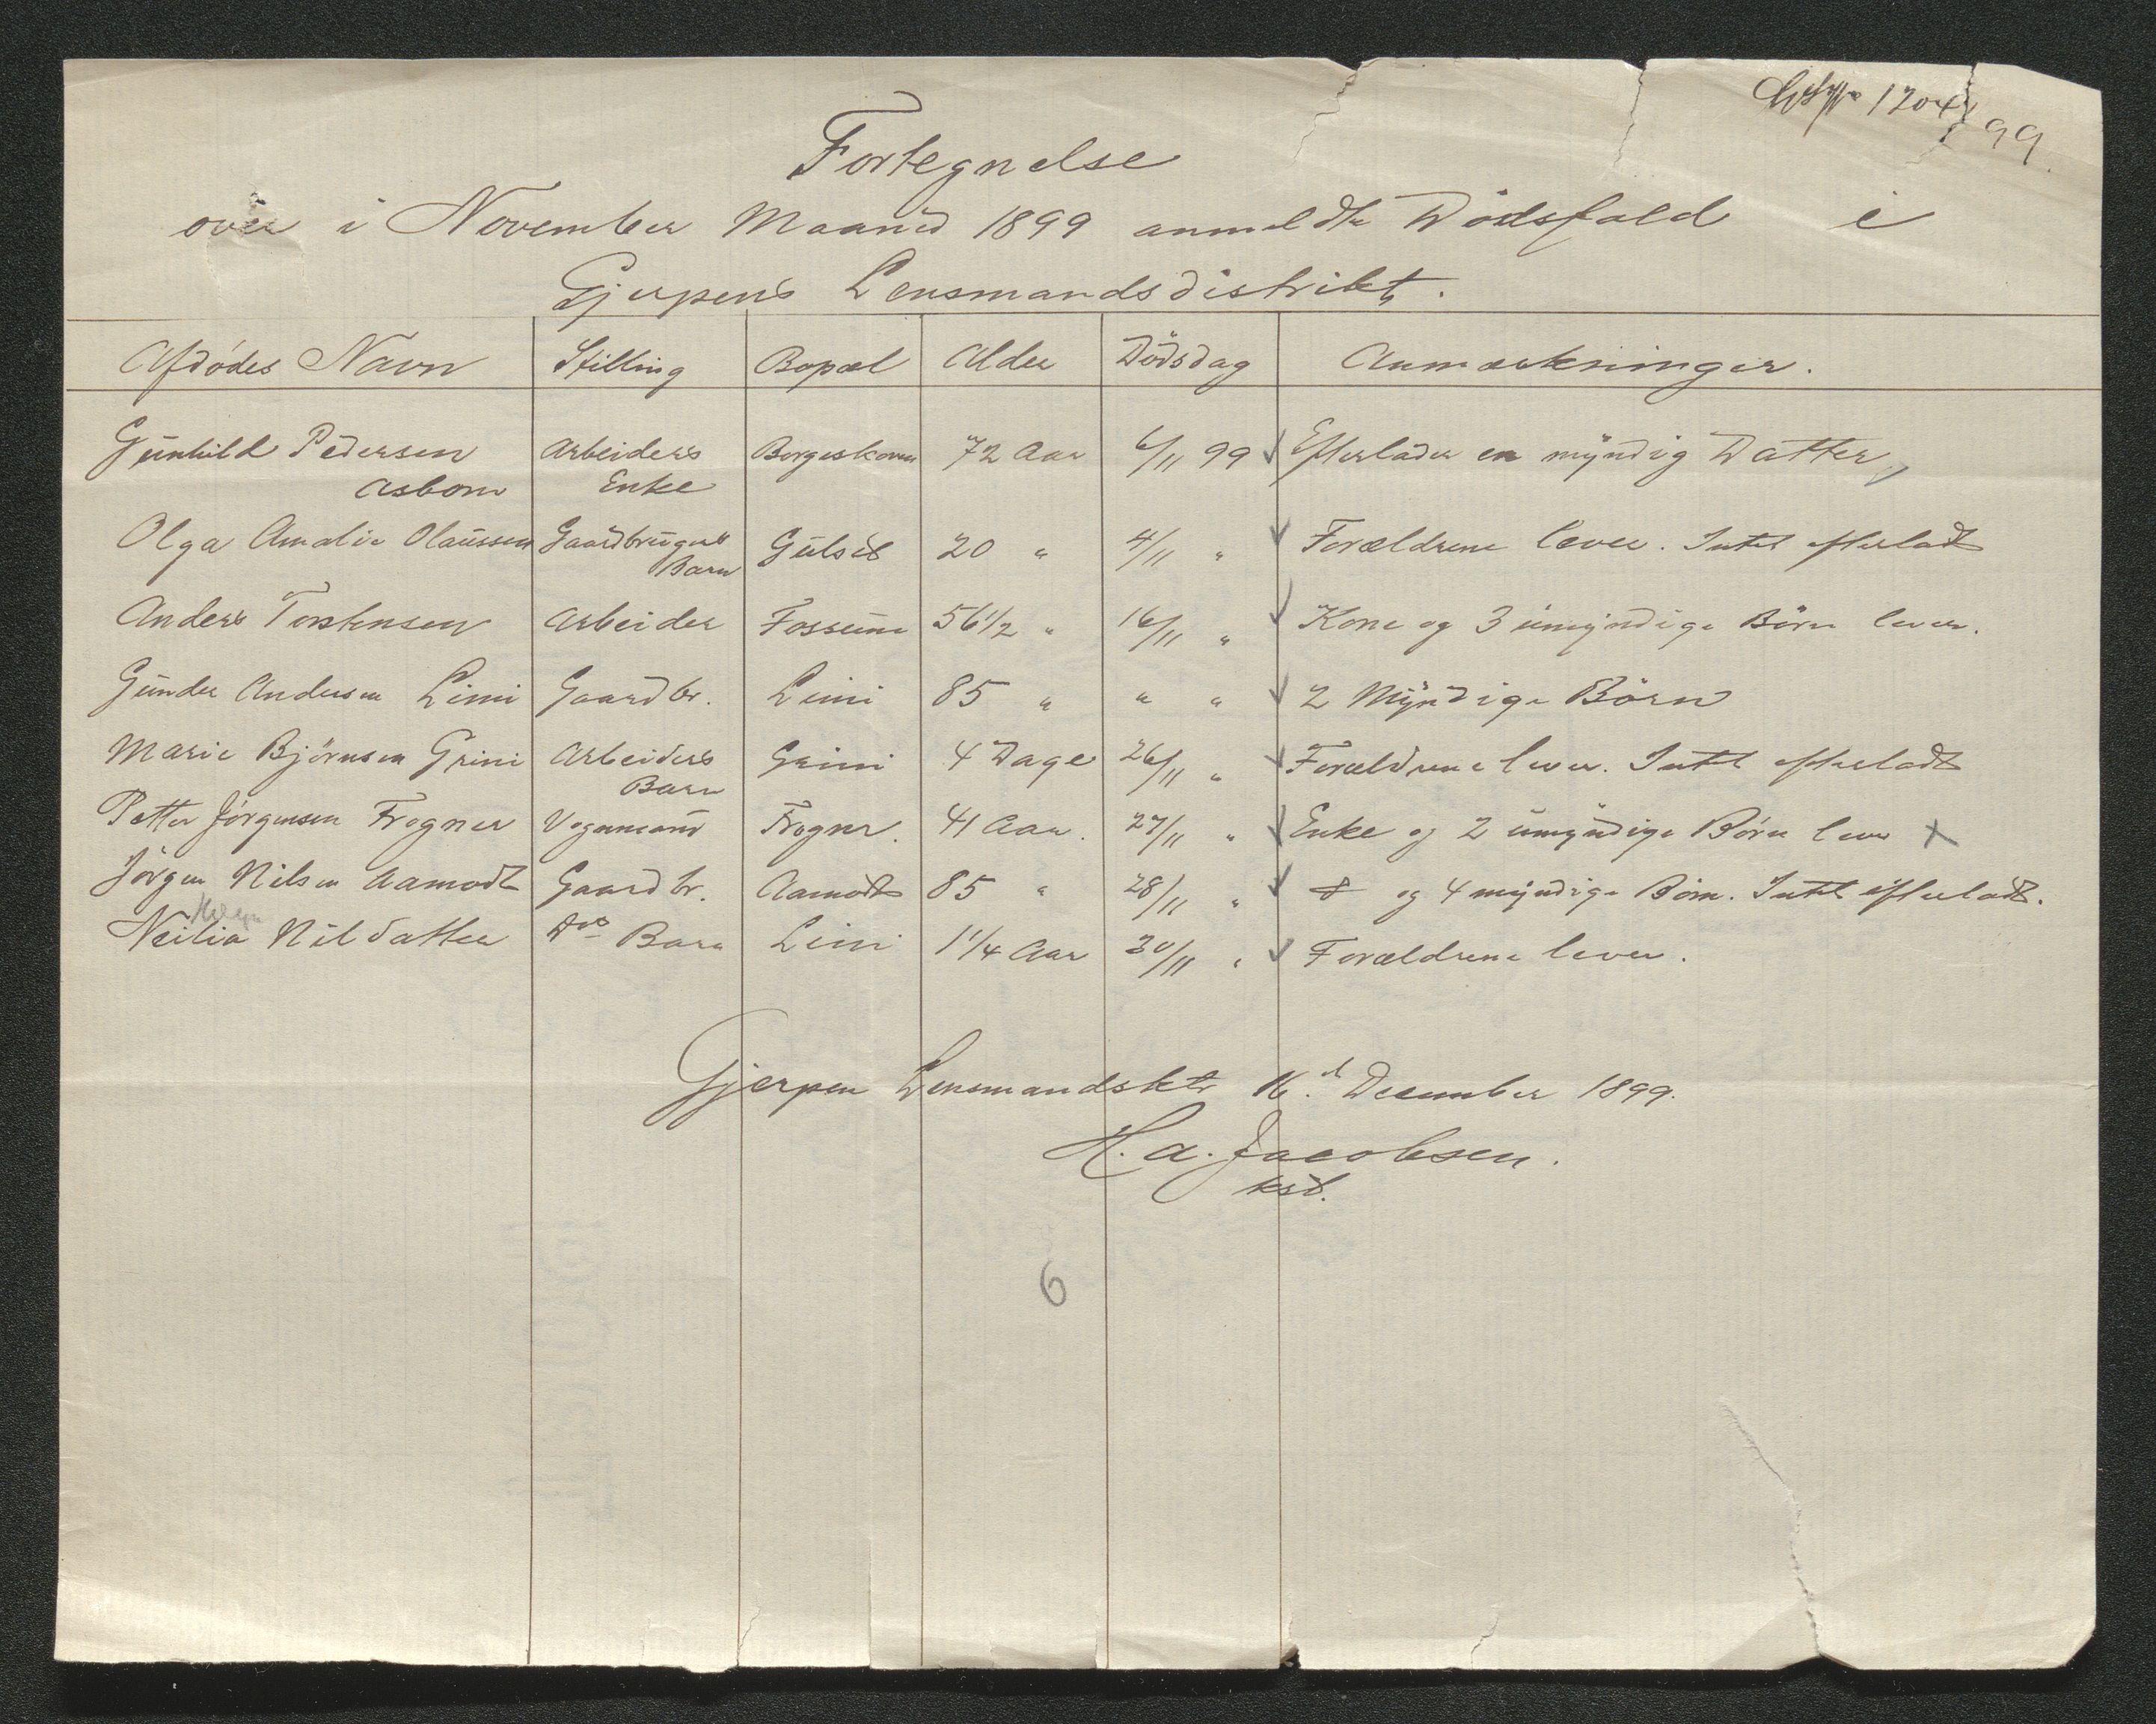 1204/99.
Fortegnelse
over i November Maaned 1899 anmeldte Dödsfald i
Gjerpens Lensmandsdistrikt.
Afdödes Navn Stilling Bopæl Alder Dödsdag Anmærkninger.
Gunhild Pedersen Arbeiders Borgeskoven 72 Aar 6/11 99 Efterlader en myndig Datter
Asbom Enke
Olga Amalie Olaussen Gaardbrugers Gulset 20 " 4/11 " Forældrene lever. Intet efterladt
Barn
Anders Torstensen Arbeider Fossum 56 1/2 " 16/11 " Kone og 3 umyndige Börn lever.
Gunder Andersen Limi Gaardbr. Limi 85 " " " 2 Myndige Börn
Marie Björnsen Grini Arbeiders Grini 4 Dage 26/11 " Forældrene lever. Intet efterladt
Barn
Petter Jörgensen Frogner Vognmand Frogner. 41 Aar. 27/11 " Enke og 2 umyndige Börn lever x
Jörgen Nilsen Aamodt Gaardbr. Aamodt 85 " 28/11 " og 4 myndige Börn. Intet efterladt.
Helga
Neilia Nilsdatter Do Barn Limi 1 1/4 Aar 30/11 " Forældrene lever.
Gjerpen Lensmandsktr 16.d December 1899.
H. A. Jacobsen.
kst.
6